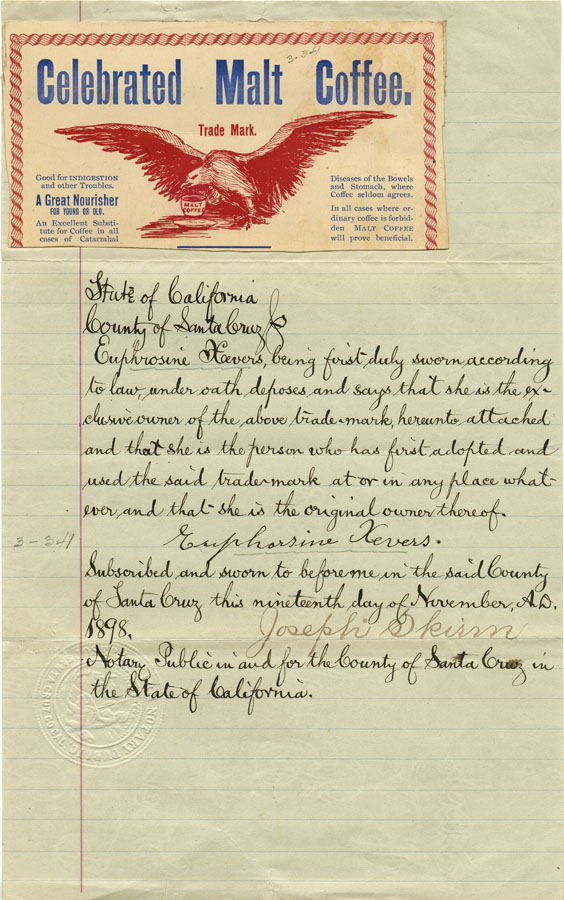 3-341
Celebrated Malt Coffee.
Trade Mark.
Good for INDIGESTION
and other Troubles.
A Great Nourisher
FOR YOUNG OR OLD.
An Excellent Substi-
tute for Coffee in all
cases of Catarrahal
MALT
COFFEE
Diseases of the Bowels
and Stomach, where
Coffee seldom agrees.
In all cases where or-
dinary coffee is forbid-
den MALT COFFEE
will prove beneficial.
State of California
County of Santa Cruz
Euphrosine Xevers, being first duly sworn according
to law, under oath, deposes and says that she is the ex-
clusive owner of the above trade-mark, hereunto attached
and that she is the person who has first adopted and
used the said trade-mark at or in any place what-
ever, and that she is the original owner thereof.
3-341
Euphorsine Xevers.
Subscribed and sworn to before me, in the said County
of Santa Cruz this nineteenth day of November, A.D.
1898.
Joseph Skirm
Notary Public in and for the County of Santa Cruz in
the State of California.
NOTARY PUBLIC
SANTA CRUZ CO. CAL.